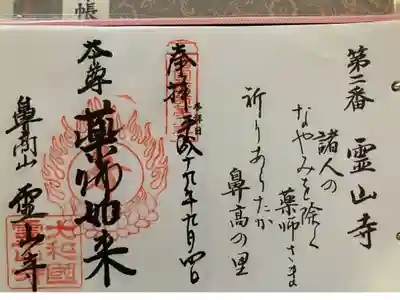 第二番 霊山寺
諸人の
なやみを除く
薬師さま
祈りあらたか
鼻高の里
奉拝 平成十九年九月四日
本尊 薬師如来
鼻高山 霊山寺
大和國
霊山寺
帳